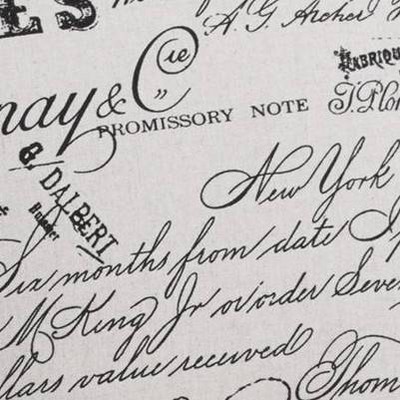 ES
A. G. Archer
nay & Cie
FABRIQU
PROMISSORY NOTE
J. Plon
& DALBERT
New York
Six months from date I p
McKing Jr or order Seve
llars value received
Thom